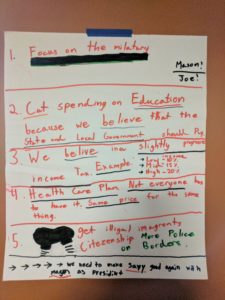 1. Focus on the milatary
Mason!
Joe!
2. Cut spending on Education
because we believe that the
State and Local Government should Pay
3. We belive in a slightly progresive
income Tax. Example:
Low - 10%
Mid - 15%
High - 20%
4. Health Care Plan Not everyone has
to have it. Same price for the same
thing.
5. get illigal imagrents
Citizenship More Police
on Borders.
we need to make  good again with
mason as President